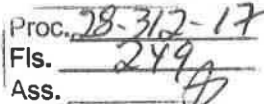 Proc. 28-312-17
Fls. 249
Ass.